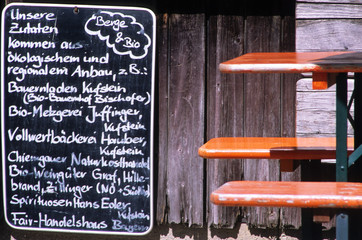 Unsere
Zutaten
kommen aus
ökologischem und
regionalem Anbau, z.B.:
Berge
& Bio
Bauernladen Kufstein
(Bio-Bauernhof Bischofer)
Bio-Metzgerei Juffinger,
Kufstein
Vollwertbäckerei Hauber,
Kufstein
Chiemgauer Naturkosthandel
Bio-Weingüter Graf, Hille-
brand, Zillinger (NÖ+Südtirol)
Spirituosen Hans Eder
Kufstein
Fair-Handelshaus